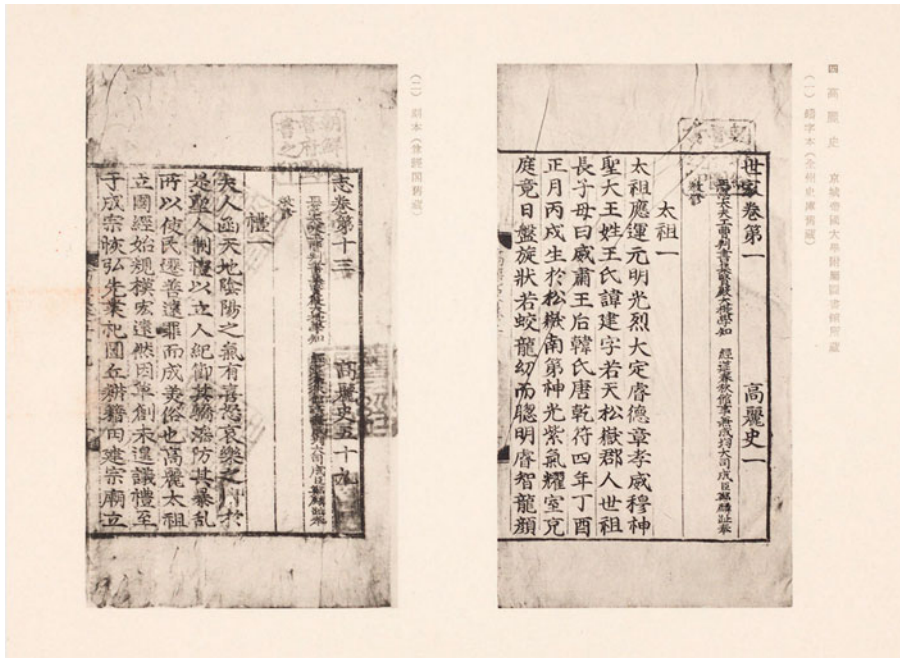 四 高麗史 京城帝國大學附屬圖書館所藏
(一) 鑄字本(全州史庫舊藏)
世家卷第一 高麗史一
正憲大夫工曹判書集賢殿大提學知 經筵春秋館事兼成均大司成臣鄭麟趾奉
教修
太祖一
太祖應運元明光烈大定睿德章孝威穆神
聖大王姓王氏諱建字若天松嶽郡人世祖
長子母曰威肅王后韓氏唐乾符四年丁酉
正月丙戌生於松嶽南第神光紫氣耀室充
庭竟日盤旋狀若蛟龍幼而聰明睿智龍顔
(二) 刻本(曾經閣舊藏)
志卷第十三 高麗史五十九
正憲大夫工曹判書集賢殿大提學知 經筵春秋館事兼成均大司成臣鄭麟趾奉
教修
禮一
夫人函天地陰陽之氣有喜怒哀樂之情於
是聖人制禮以立人紀節其驕淫防其暴亂
所以使民遷善遠罪而成美俗也高麗太祖
立國經始規模宏遠然因草創未遑議禮至
于成宗恢弘先業祀圜丘耕籍田建宗廟立